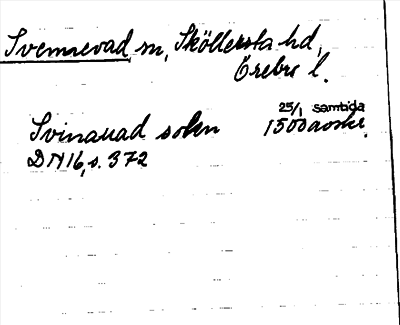 Svennevad sn, Sköllersta hd,
Örebro l.
25/1 samtida
Svinauad sokn 1500 avskr.
DN 16, s. 372